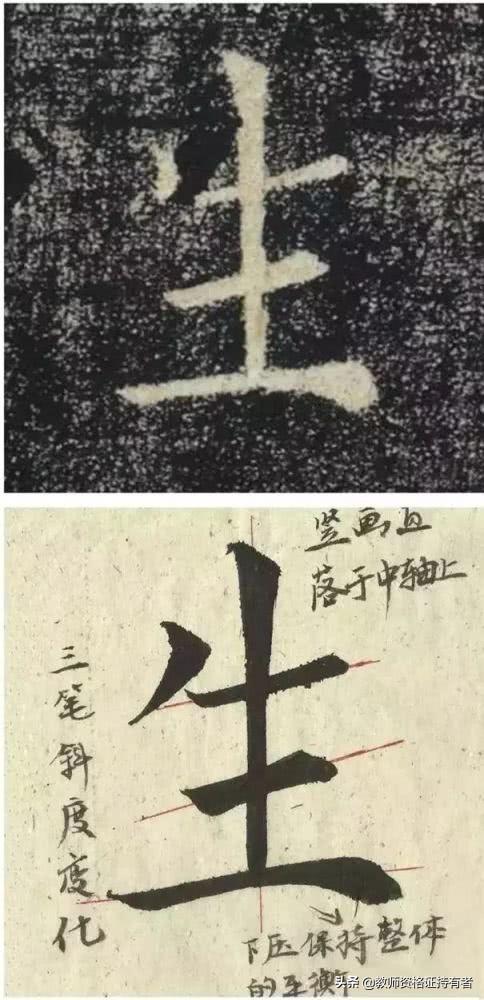 生
竖画
落于中轴上
三笔斜度变化
生
下压保持整体
的平衡
头条 @教师资格证持有者